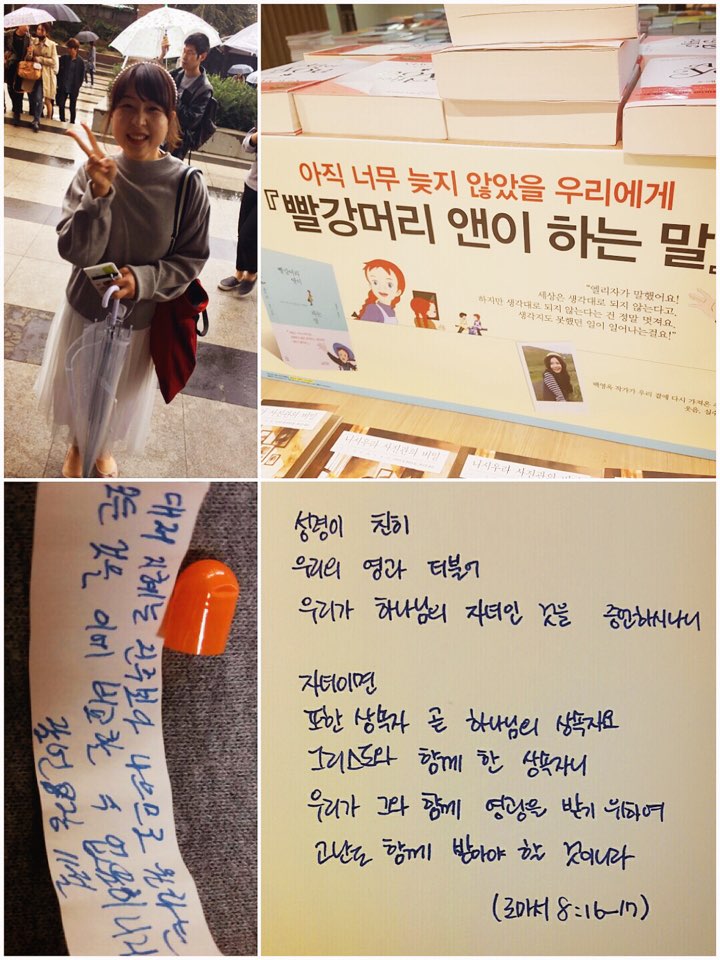 아직 너무 늦지 않았을 우리에게
『빨강머리 앤이 하는 말』
"엘리자가 말했어요!
세상은 생각대로 되지 않는다고.
하지만 생각대로 되지 않는다는 건 정말 멋져요.
생각지도 못했던 일이 일어나는걸요!"
백영옥 작가가 우리 곁에 다시 가져온
웃음,
빨강머리
앤이
하는
말
니시우라 사진관의 비밀
니시우라 사진관의 비밀
니시우라 사진관의 비밀
대저 지혜는 진주보다 나으므로 원하는
모든 것을 이에 비교할 수 없음이니라
잠언 8장 11절
성령이 친히
우리의 영과 더불어
우리가 하나님의 자녀인 것을 증언하시나니
자녀이면
또한 상속자 곧 하나님의 상속자요
그리스도와 함께 한 상속자니
우리가 그와 함께 영광을 받기 위하여
고난도 함께 받아야 할 것이니라
(로마서 8:16-17)